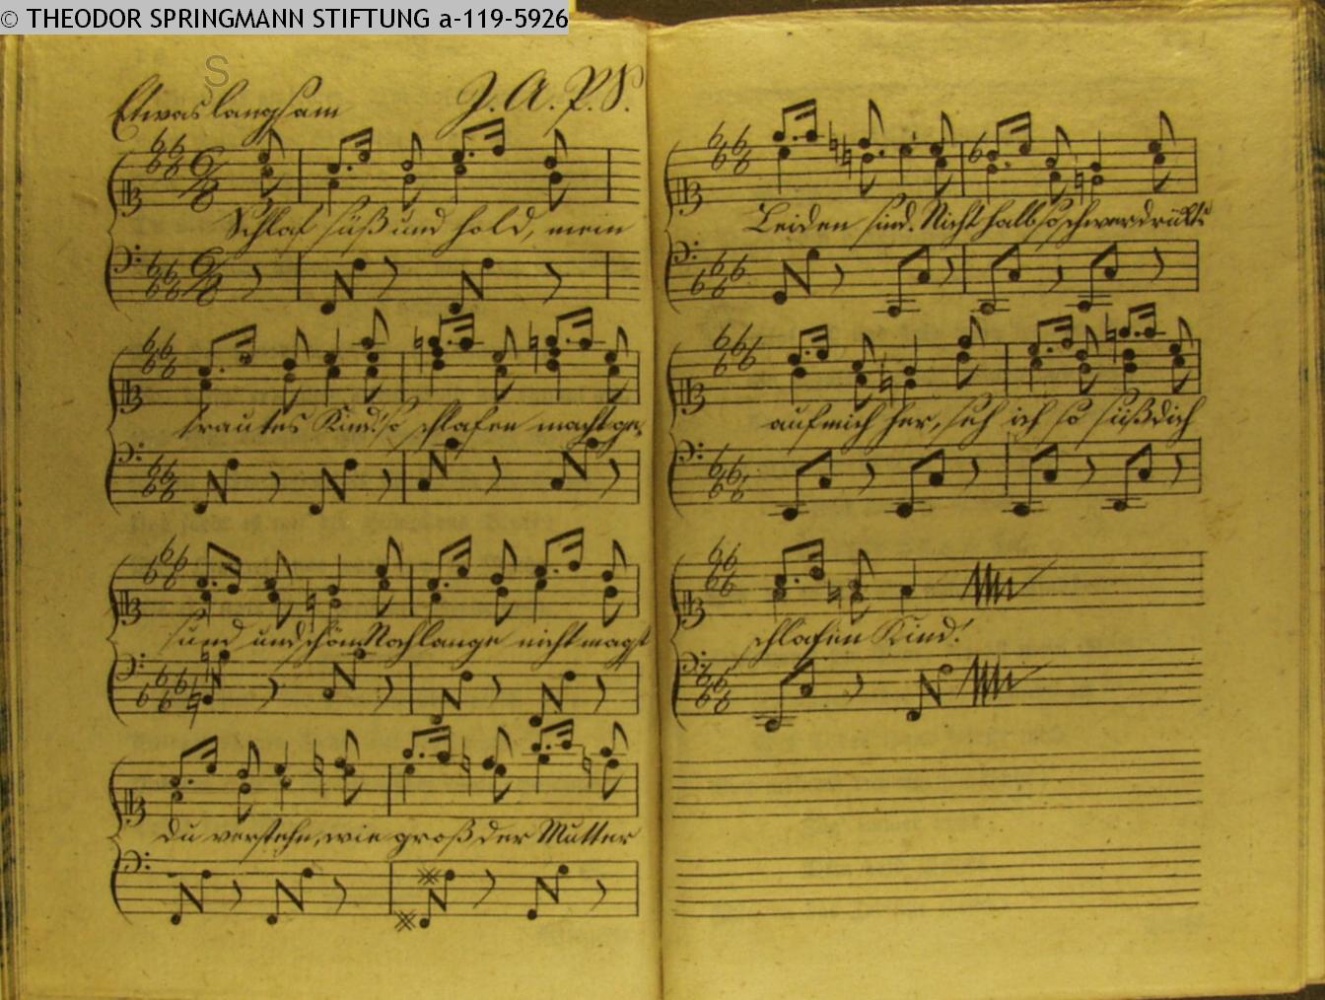 © THEODOR SPRINGMANN STIFTUNG a-119-5926
S
Etwas langsam J. A. P. S.
Schlaf süß und hold, mein
trautes Kind! so schlafen macht ge„
sund und schön Noch lange nicht magst
Du verstehn, wie groß der Mutter
Leiden sind. Nicht halb so schwer drückts
auf mich her, seh ich so süß dich
schlafen Kind!